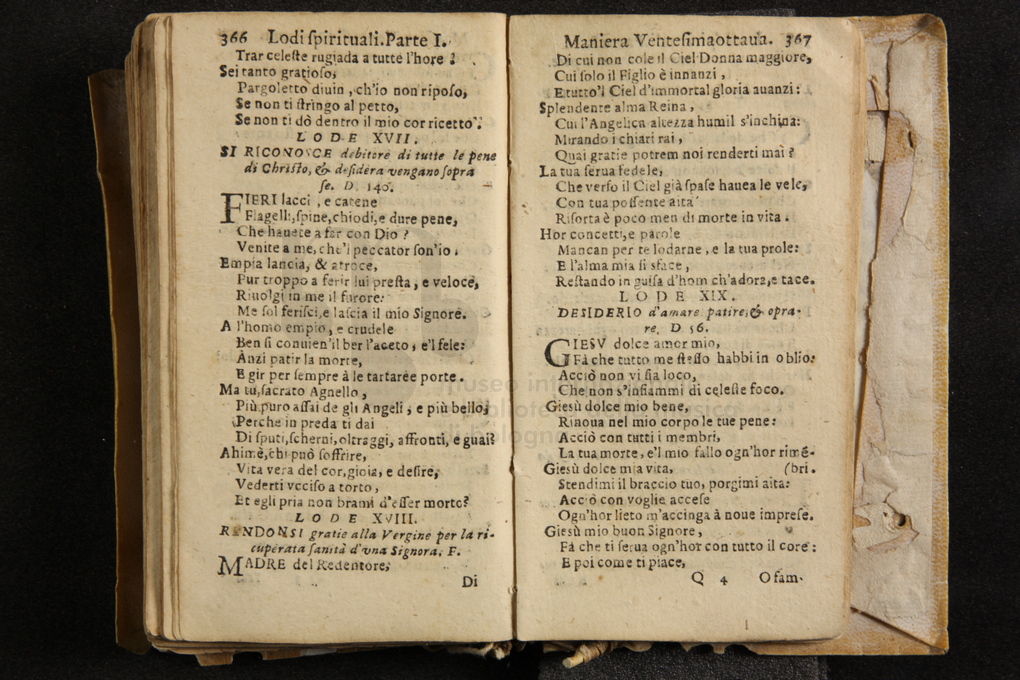 366 Lodi ſpirituali. Parte I.
Trar celeſte rugiada a tutte l'hore ?
Sei tanto gratioſo,
Pargoletto diuin, ch'io non ripoſo,
Se non ti ſtringo al petto,
Se non ti dò dentro il mio cor ricetto.
LODE XVII.
SI RICONOSCE debitore di tutte le pene
di Chriſto, & deſidera vengano ſopra
ſe. D. 140.
FIERI lacci, e catene
Flagelli, ſpine, chiodi, e dure pene,
Che hauete a far con Dio ?
Venite a me, che'l peccator ſon'io.
Empia lancia, & atroce,
Pur troppo a ferir lui preſta, e veloce,
Riuolgi in me il furore:
Me ſol feriſci, e laſcia il mio Signore.
A l'homo empio, e crudele
Ben ſi conuien'il ber l'aceto, e'l fele:
Anzi patir la morte,
E gir per ſempre à le tartaree porte.
Ma tu, ſacrato Agnello,
Più puro aſſai de gli Angeli, e più bello,
Perche in preda ti dai
Di ſputi, ſcherni, oltraggi, affronti, e guai?
Ahimè, chi può ſoffrire,
Vita vera del cor, gioia, e deſire,
Vederti vcciſo a torto,
Et egli pria non brami d'eſſer morto?
LODE XVIII.
RENDONSI gratie alla Vergine per la ri-
cuperata ſanità d'vna Signora. F.
MADRE del Redentore,
Di
Maniera Venteſimaottaua. 367
Di cui non cole il Ciel Donna maggiore,
Cui ſolo il Figlio è innanzi,
E tutto'l Ciel d'immortal gloria auanzi:
Splendente alma Reina,
Cui l'Angelica altezza humil s'inchina:
Mirando i chiari rai,
Quai gratie potrem noi renderti mai ?
La tua ſerua fedele,
Che verſo il Ciel già ſpaſe hauea le vele,
Con tua poſſente aita
Riſorta è poco men di morte in vita.
Hor concetti, e parole
Mancan per te lodarne, e la tua prole:
E l'alma mia ſi sface,
Reſtando in guiſa d'hom ch'adora, e tace.
LODE XIX.
DESIDERIO d'amare patire, & opra-
re. D 56.
GIESV dolce amor mio,
Fà che tutto me ſteſſo habbi in oblio:
Acciò non vi ſia loco,
Che non s'infiammi di celeſte foco.
Gieſù dolce mio bene,
Rinoua nel mio corpo le tue pene:
Acciò con tutti i membri,
La tua morte, e'l mio fallo ogn'hor rimẽ-
Gieſù dolce mia vita, (bri.
Stendimi il braccio tuo, porgimi aita:
Acciò con voglie acceſe
Ogn'hor lieto m'accinga à noue impreſe.
Gieſù mio buon Signore,
Fà che ti ſerua ogn'hor con tutto il core:
E poi come ti piace,
Q 4 O fam-